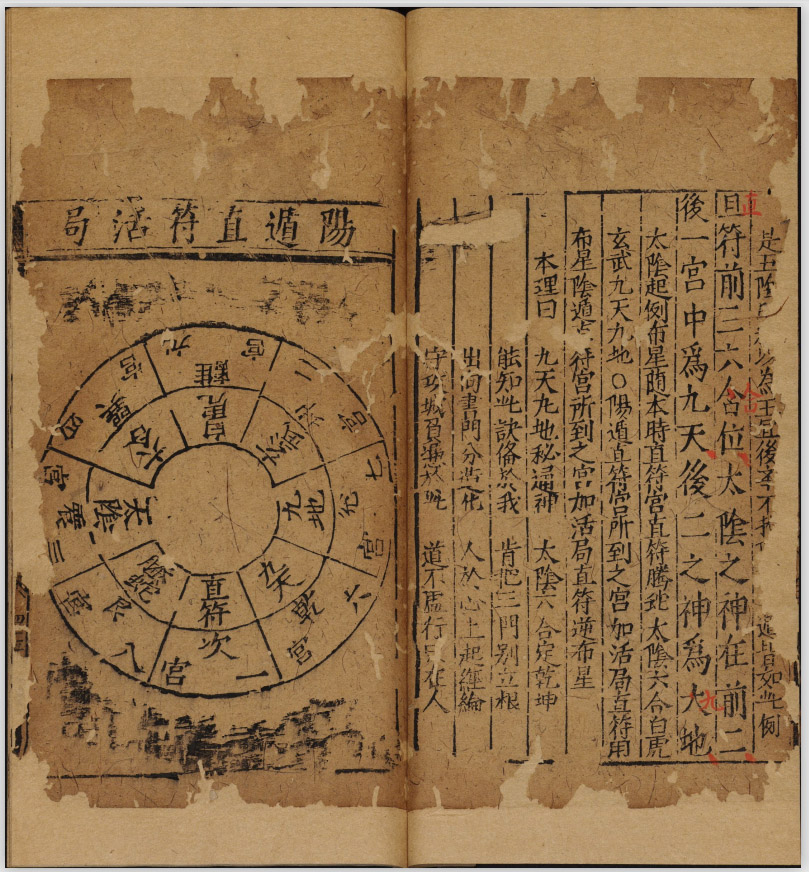 是五陰 為 後 不 遁皆如此例
旦符前三六合位太陰之神在前二
直
合
後一宮中爲九天後二之神爲大地
九
太陰起例布星隨本時直符宮直符騰虵太陰六合白虎
玄武九天九地〇陽遁直符宮所到之宮加活局直符用
布星陰遁 符宮所到之宮加活局直符逆布星
本理曰 九天九地秘通神 太陰六合定乾坤
能知此訣俻於我 肯把三門別立根
出 門分造化 人於心上起經綸
守攻城百 於此 道不虛行 在人
陽遁直符活局
九宮 離 白虎
二宮 坤 玄武
七宮 兌 九地
六宮 乾 九天
一宮 次 直符
八宮 艮 騰蛇
三宮 震 太陰
四宮 巽 六合